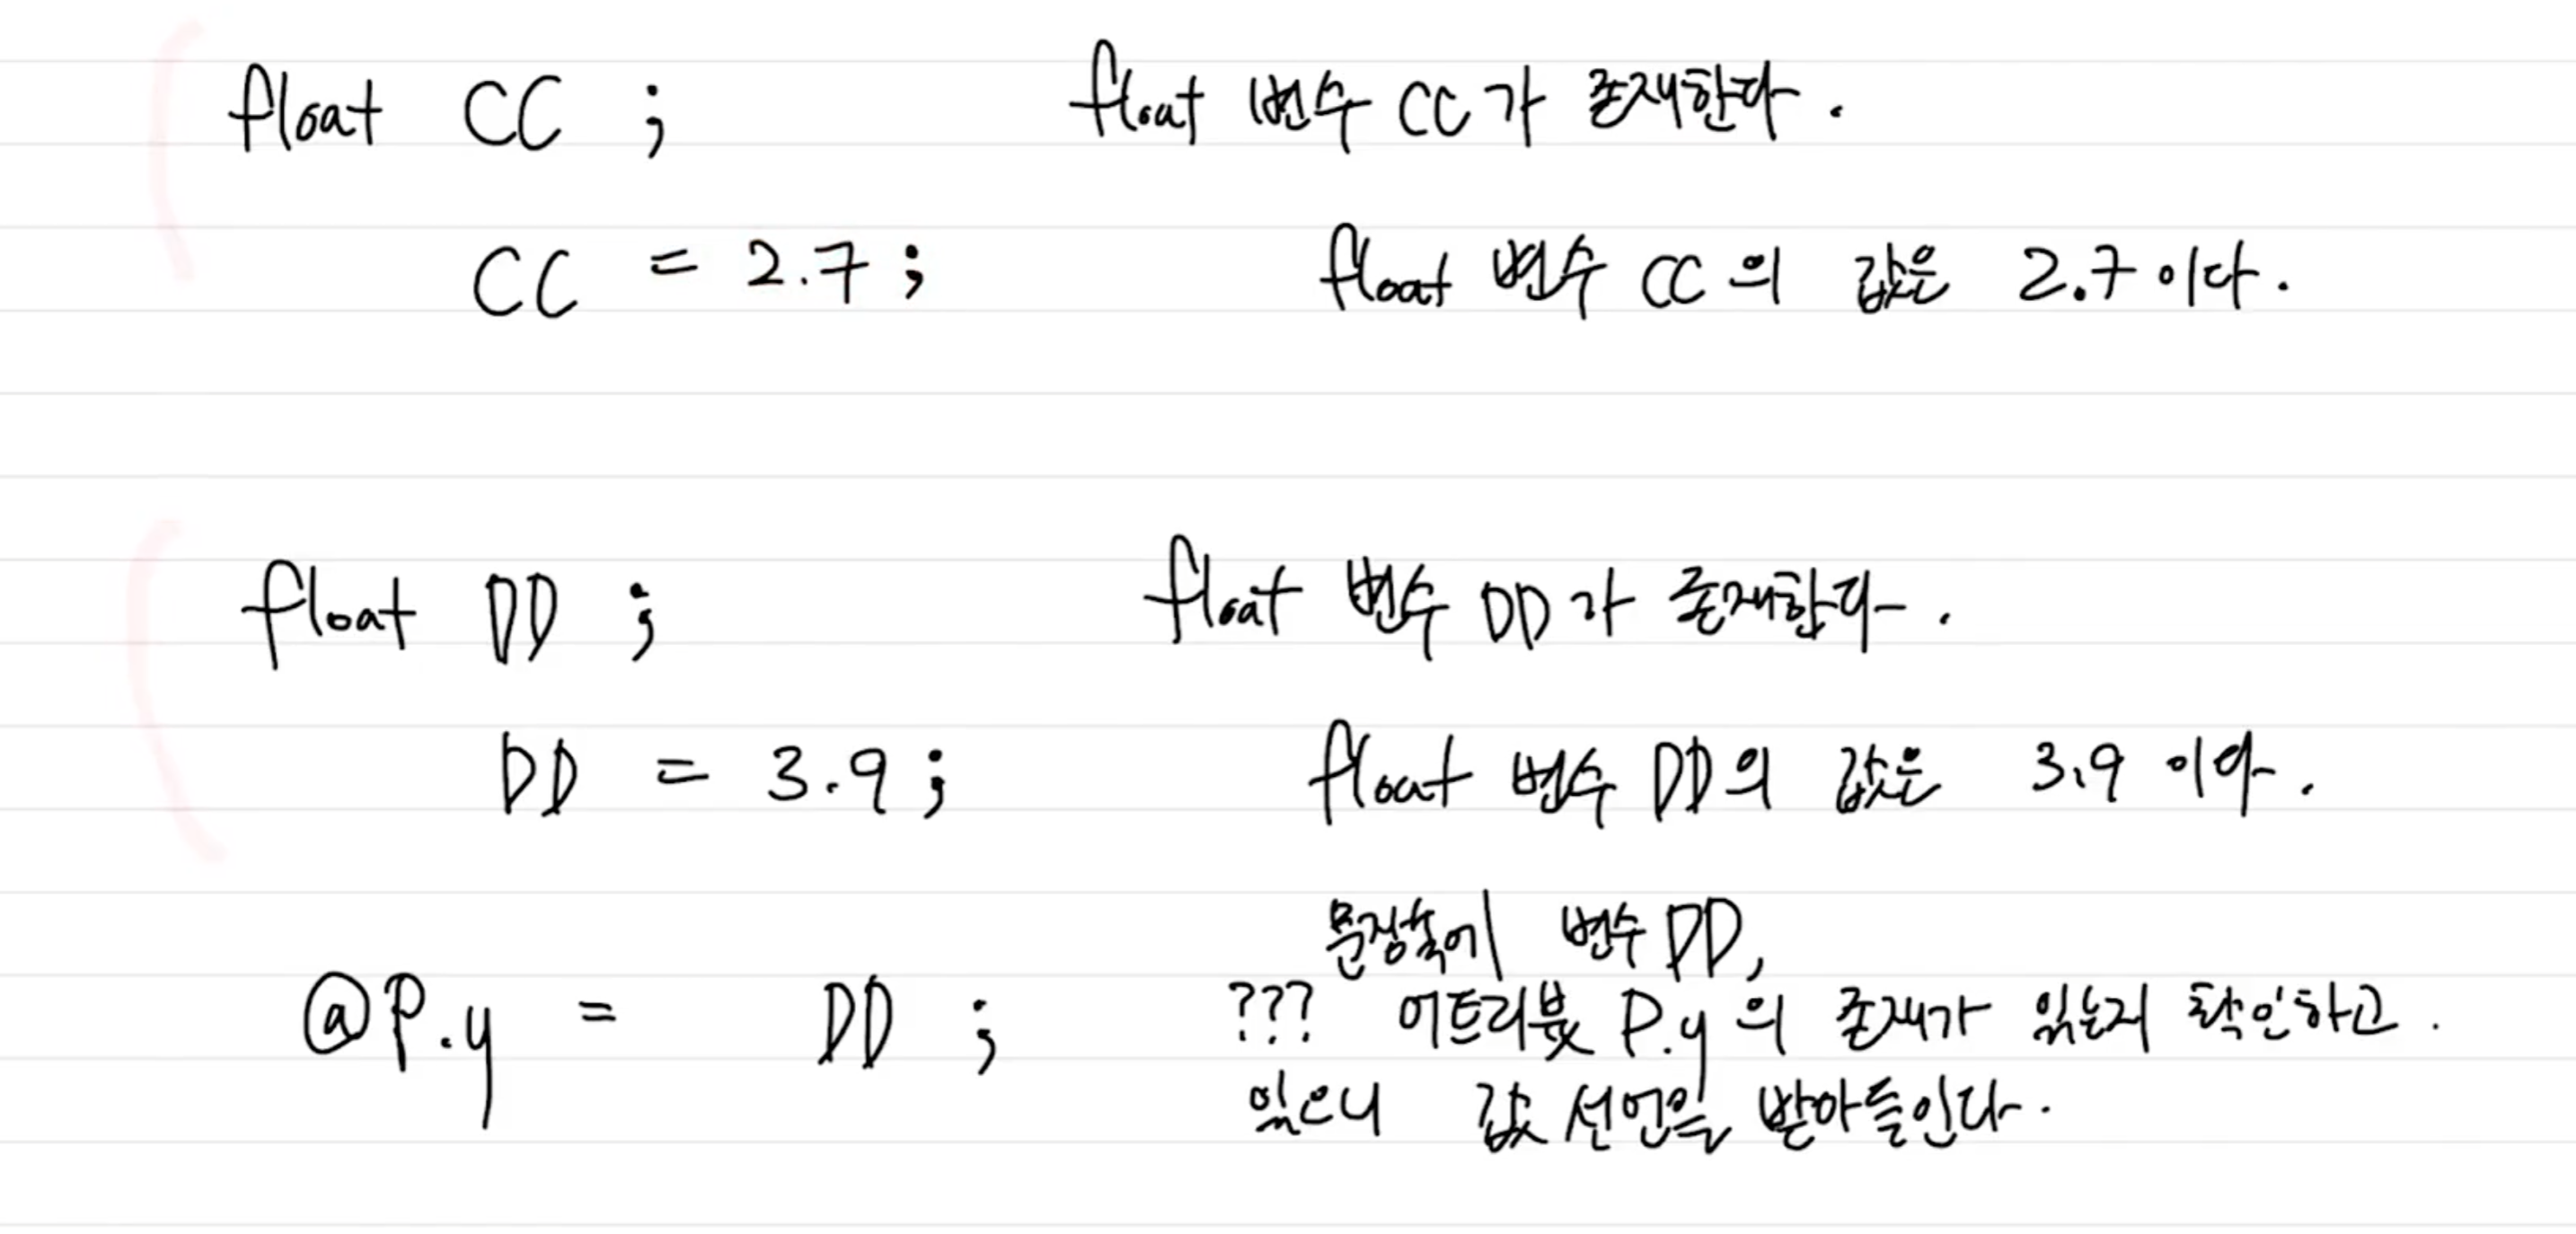 float CC ; float 변수 CC가 존재한다.
CC = 2.7 ; float 변수 CC의 값은 2.7이다.
float DD ; float 변수 DD가 존재한다.
DD = 3.9 ; float 변수 DD의 값은 3.9이다.
문장속에 변수 DD,
@P.y = DD ; ??? 어트리뷰트 P.y의 존재가 있는지 확인하고.
있으니 값 선언을 받아들인다.